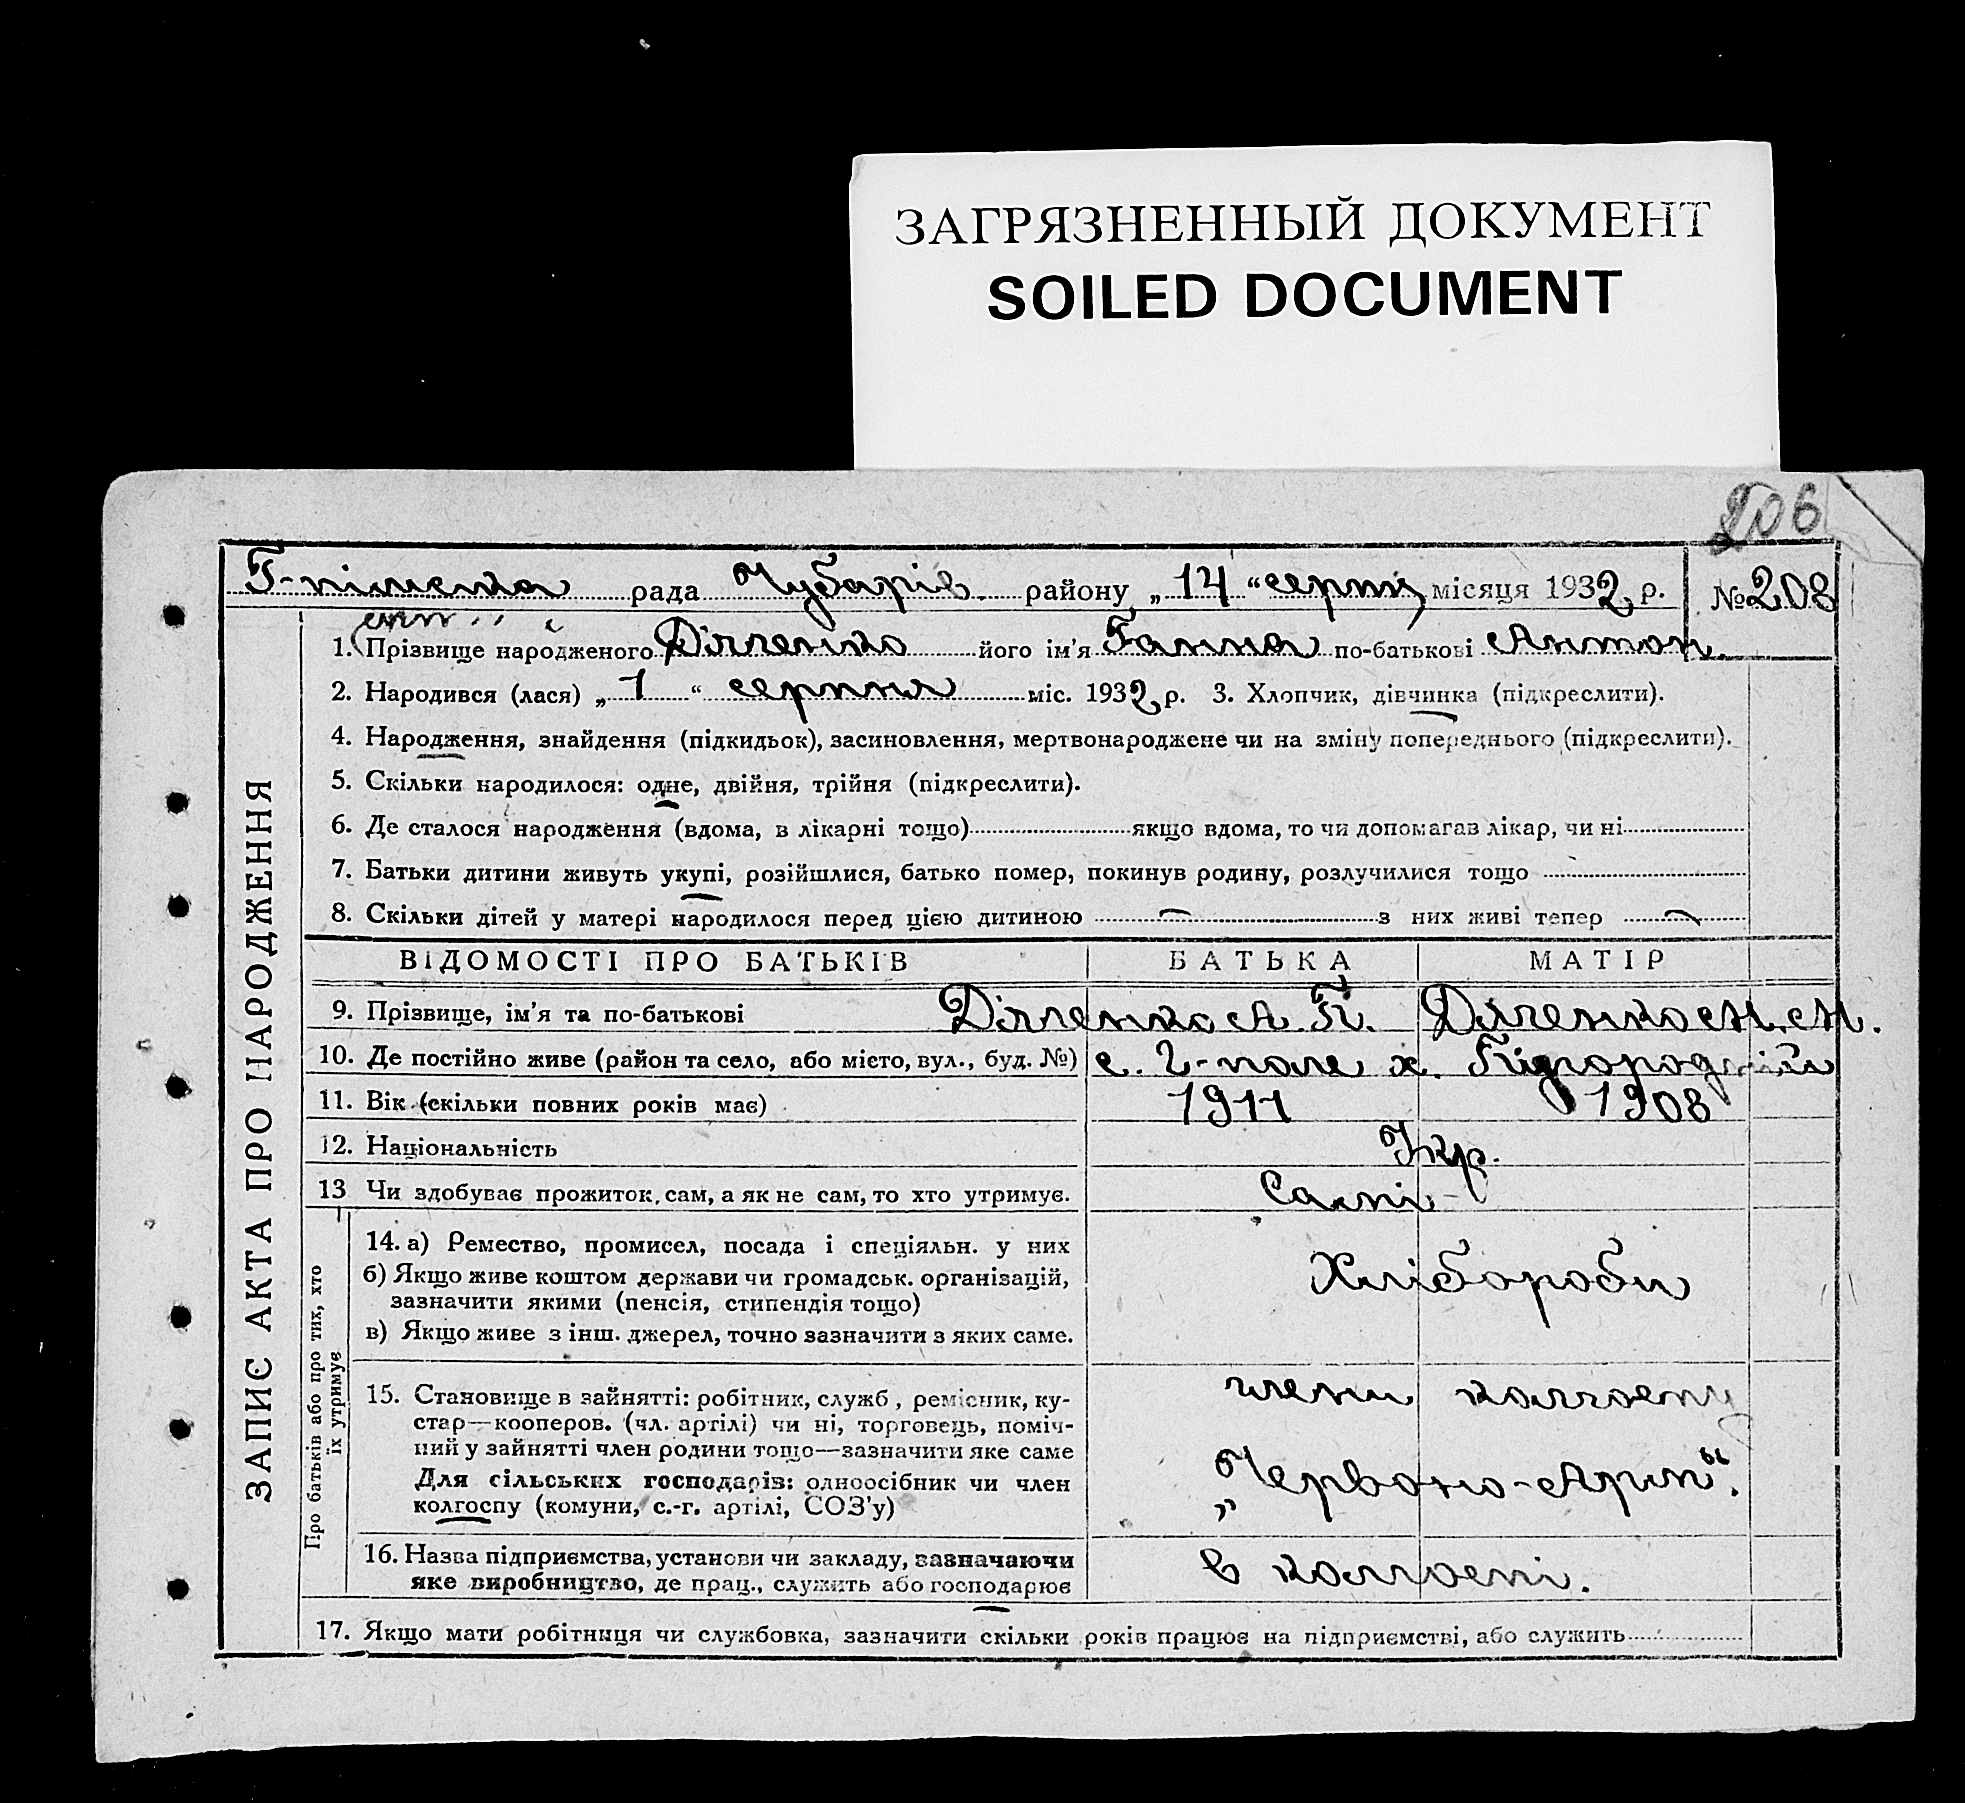 ЗАГРЯЗНЕННЫЙ ДОКУМЕНТ
SOILED DOCUMENT
206
рада Чубарів. району „14“ серпня місяця 1932 р. № 208
1. Прізвище народженого Дяченко його ім'я Ганна по-батькові Антон.
2. Народився (лася) „1“ серпня міс. 1932 р. 3. Хлопчик, дівчинка (підкреслити).
4. Народження, знайдення (підкидьок), засиновлення, мертвонароджене чи на зміну попереднього (підкреслити).
5. Скільки народилося: одне, двійня, трійня (підкреслити).
6. Де сталося народження (вдома, в лікарні тощо) якщо вдома, то чи допомагав лікар, чи ні
7. Батьки дитини живуть укупі, розійшлися, батько помер, покинув родину, розлучилися тощо
8. Скільки дітей у матері народилося перед цією дитиною — з них живі тепер —
ВІДОМОСТІ ПРО БАТЬКІВ БАТЬКА МАТІР
9. Прізвище, ім'я та по-батькові Дяченко А. П. Дяченко М. М.
10. Де постійно живе (район та село, або місто, вул., буд. №) с. Г-поле х.
11. Вік (скільки повних років має) 1911 1908
12. Національність Укр.
13 Чи здобуває прожиток сам, а як не сам, то хто утримує. Самі
14. а) Ремество, промисел, посада і спеціяльн. у них
б) Якщо живе коштом держави чи громадськ. організацій,
зазначити якими (пенсія, стипендія тощо)
в) Якщо живе з інш. джерел, точно зазначити з яких саме.
Хлібороби
15. Становище в зайнятті: робітник, служб, ремісник, ку-
стар—кооперов. (чл. артілі) чи ні, торговець, поміч-
ний у зайнятті член родини тощо—зазначити яке саме
Для сільських господарів: одноосібник чи член
колгоспу (комуни, с.-г. артілі, СОЗ'у)
члени колгоспу
„Червоно-Арм“.
16. Назва підприємства, установи чи закладу, зазначаючи
яке виробництво, де прац., служить або господарює
в колгоспі.
17. Якщо мати робітниця чи службовка, зазначити скільки років працює на підприємстві, або служить
ЗАПИС АКТА ПРО НАРОДЖЕННЯ
Про батьків або про тих, хто
їх утримує